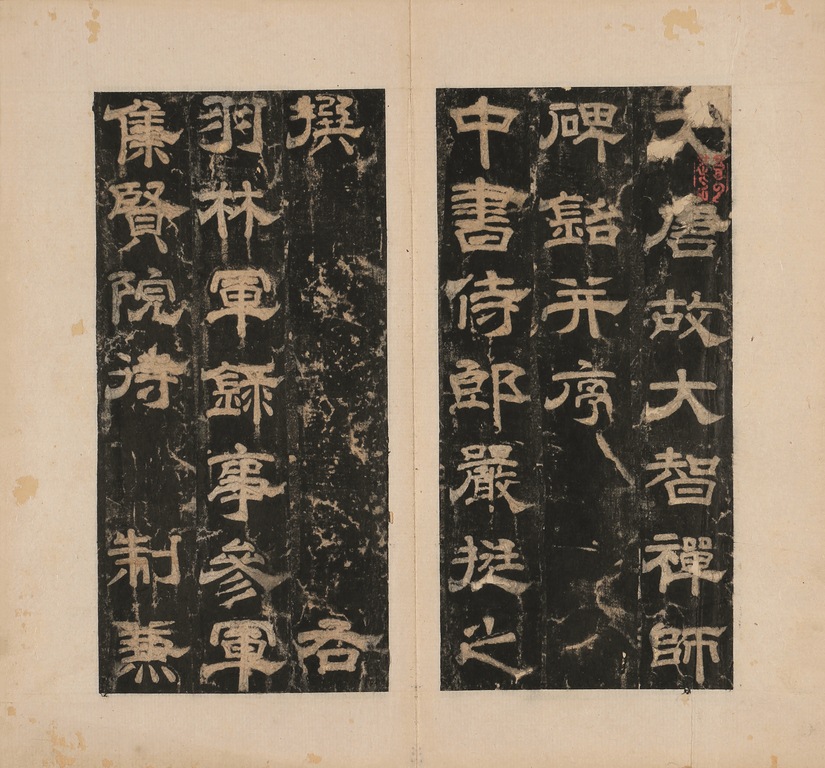 大唐故大智禪師
碑銘并序
中書侍郎嚴挺之
撰 右
羽林軍錄事參軍
集賢院待 制兼